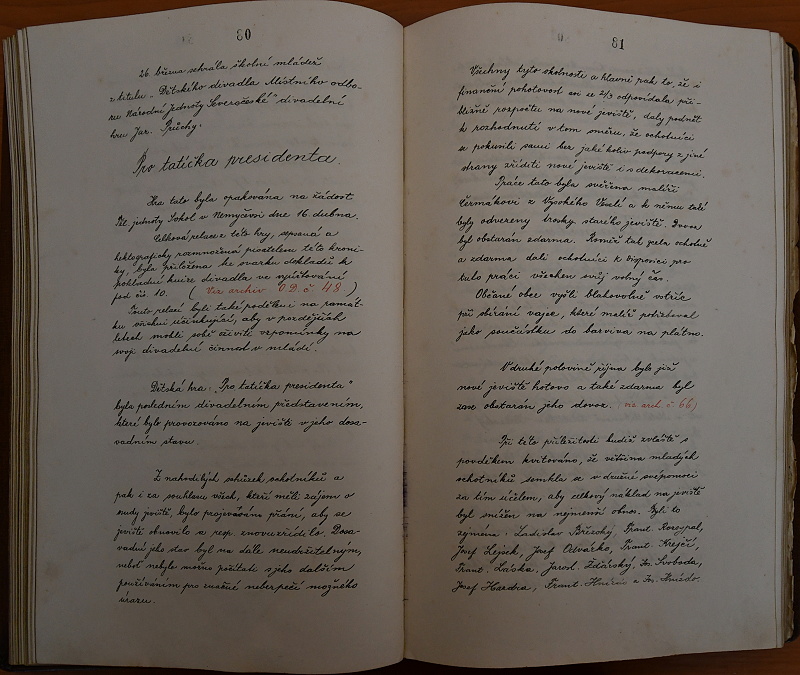 80
26. března sehrála školní mládež
z titulu „Dětského divadla Místního odbo-
ru Národní Jednoty Severočeské" divadelní
hru Jar. Průchy.
Pro tatíčka presidenta.
Hra tato byla opakována na žádost
Těl. jednoty Sokol v Nemyčevsi dne 16. dubna.
Celková relace z této hry, sepsaná a
hektograficky rozmnožená pisatelem této kroni-
ky, byla přiložena ke svazku dokladů k
pokladní knize divadla ve
pod čís. 10. ( Viz archiv 09 č 48 )
Touto relací byli také poděleni na památ-
ku všichni účinkující, aby v pozdějších
letech mohli sobě oživiti vzpomínky na
svoji divadelní činnost v mládí.
Dětská hra: „Pro tatíčka presidenta"
byla posledním divadelním představením,
které bylo provozováno na jevišti v jeho dosa-
vadním stavu.
Z nahodilých schůzek ochotníků a
pak i za souhlasu všech, kteří měli zájem o
jeviště, bylo projevováno přání, aby se
jeviště obnovilo a resp. znovuzřídilo. Dosa-
vadní jeho stav byl na dále neudržitelným,
neboť nebylo možno počítati s jeho dalším
používáním pro značné nebezpečí možného
úrazu.
81
Všechny tyto okolnosti a hlavně pak to, že i
finanční pohotovost asi ze 2/3 odpovídala při-
bližně rozpočtu na nové jeviště, daly podnět
k rozhodnutí v tom směru, že ochotníci
se pokusili sami bez jaké koliv podpory z jiné
strany zříditi nové jeviště i s dekoracemi.
Práce tato byla svěřena malíři
Čermákovi z Vysokého Veselí a k němu také
byly odvezeny trosky starého jeviště. Dovoz
byl obstarán zdarma. Rovněž tak zcela ochotně
a zdarma dali ochotníci k disposici pro
tuto práci všechen svůj volný čas.
Občané obce vyšli blahovolně vstříc
při sbírání vajec, které malíř potřeboval
jako součástku do barviva na plátno.
V druhé polovině října bylo již
nové jeviště hotovo a také zdarma byl
zase obstarán jeho dovoz. (viz arch. č 66)
Při této příležitosti budiž zvláště s
povděkem kvitováno, že většina mladých
ochotníků semkla se v družné svépomoci
za tím účelem, aby celkový náklad na jeviště
byl snížen na nejmenší obnos. Byli to
zejména: Ladislav Břízský, Frant. Rozsypal,
Josef Lejsek, Josef Odvárko, Frant. Krejčí,
Frant. Láska, Jarosl. Žďárský, Fr. Svoboda,
Josef Hazdra, Frant. a